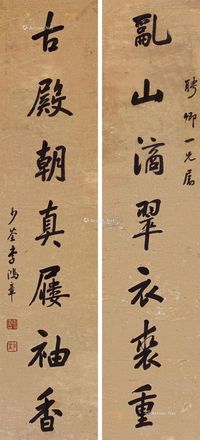 聘卿一兄屬
亂山滴翠衣裘重
古殿朝真屨袖香
少荃李鴻章